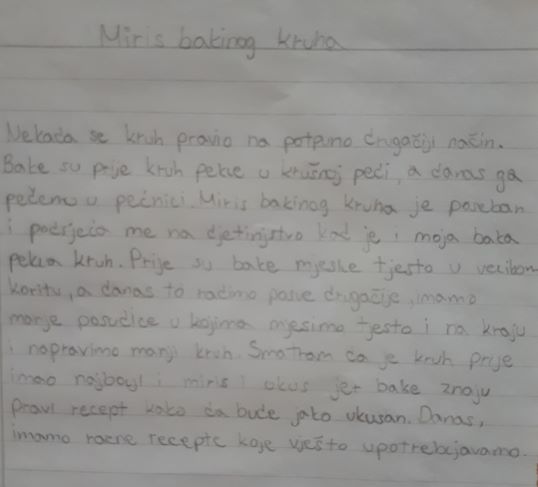 Miris bakinog kruha
Nekada se kruh pravio na potpuno drugačiji način.
Bake su prije kruh pekle u krušnoj peći, a danas ga
pečemo u pećnici. Miris bakinog kruha je poseban
i podsjeća me na djetinjstvo kad je i moja baka
pekla kruh. Prije su bake mjesile tjesto u velikom
koritu, a danas to radimo posve drugačije, imamo
manje posudice u kojima mjesimo tjesto i na kraju
i napravimo manji kruh. Smatram da je kruh prije
imao najbolji i miris i okus jer bake znaju
pravi recept kako da bude jako ukusan. Danas,
imamo razne recepte koje vješto upotrebljavamo.